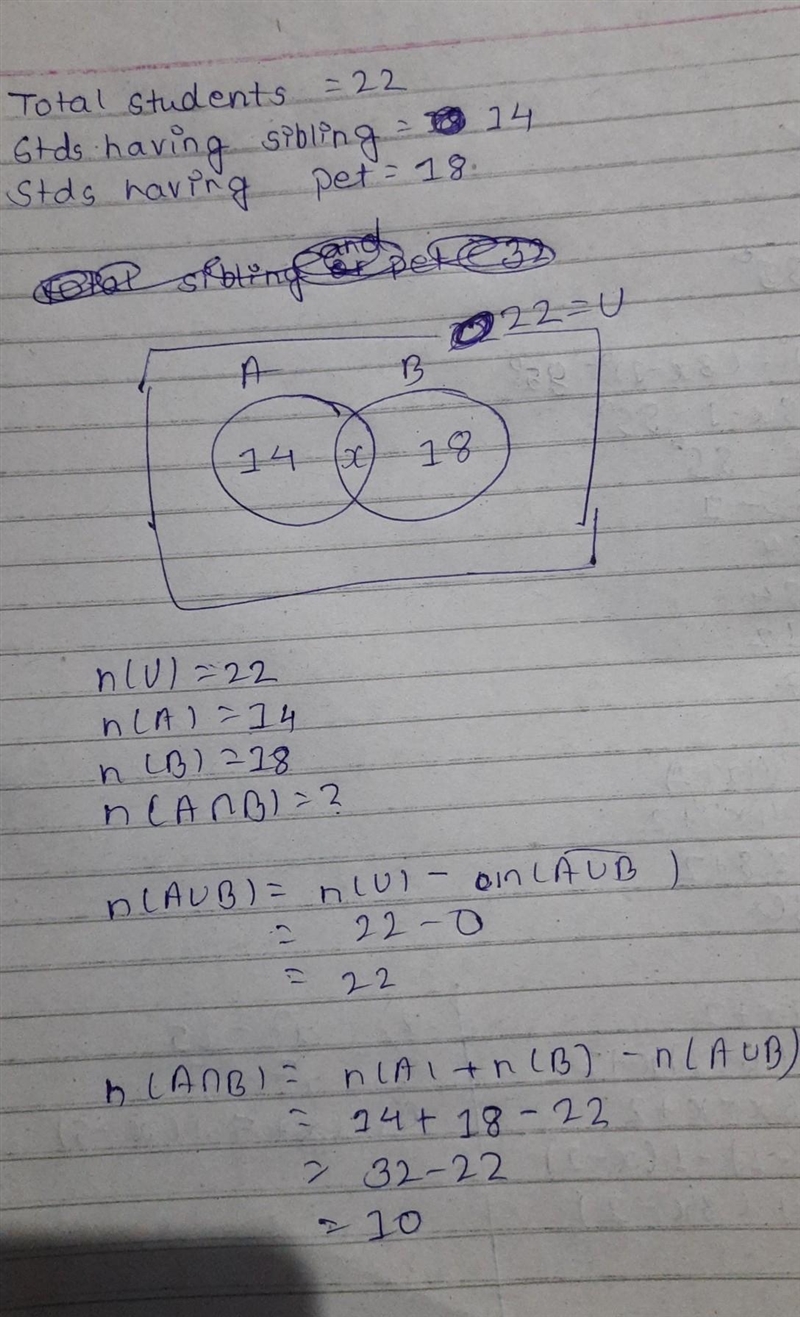 Total students = 22
Stds having sibling = 14
Stds having pet = 18
sibling and pet = 32
22 = U
A B
14 x 18
n(U) = 22
n(A) = 14
n(B) = 18
n(A∩B) = ?
n(A∪B) = n(U) - n(A̅∪̅B̅)
= 22 - 0
= 22
n(A∩B) = n(A) + n(B) - n(A∪B)
= 14 + 18 - 22
= 32 - 22
= 10